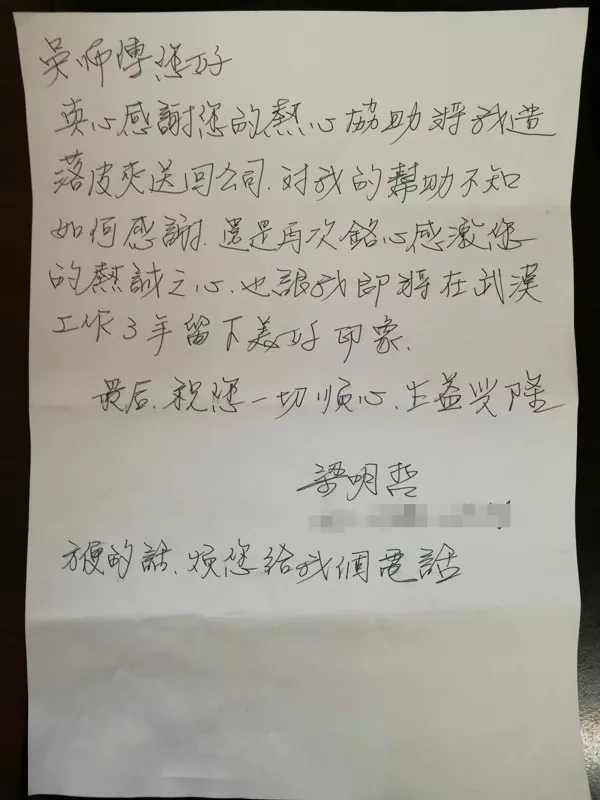 吳师傅您好
真心感謝您的熱心協助將我遺
落皮夾送回公司.对我的幫助不知
如何感謝.還是再次銘心感激您
的熱誠之心.也讓我即將在武漢
工作3年留下美好印象.
最后.祝您一切順心.生益兴隆
梁明哲
方便的話.煩您給我個電話